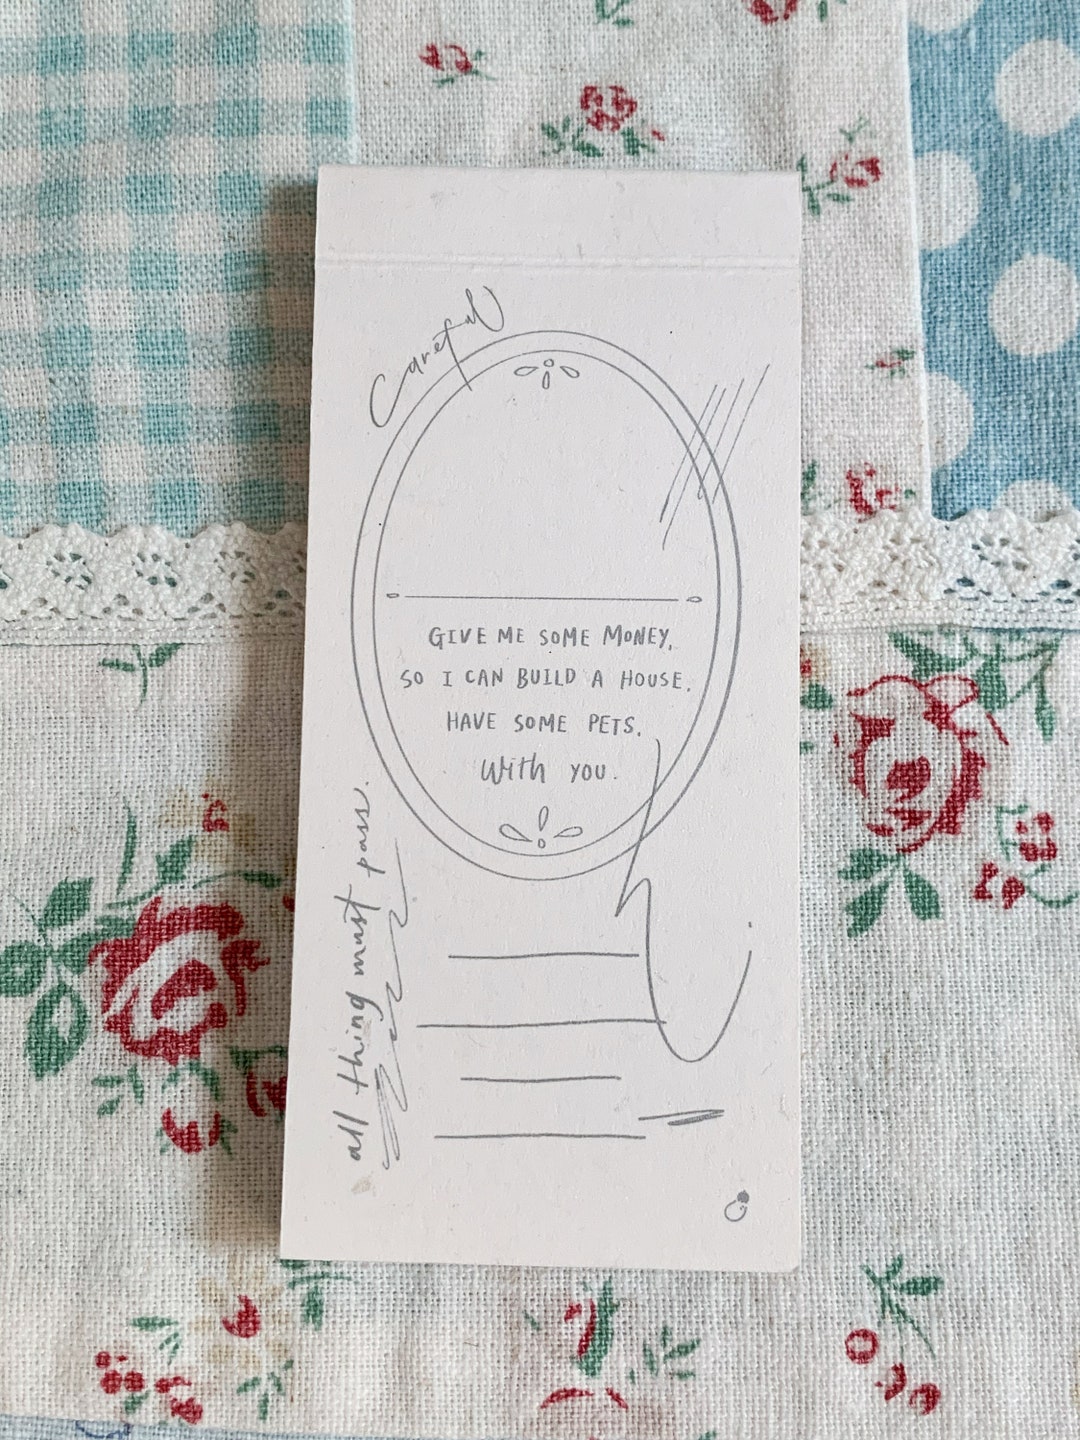 Careful
GIVE ME SOME MONEY,
SO I CAN BUILD A HOUSE.
HAVE SOME PETS.
With YOU.
all thing must pass.